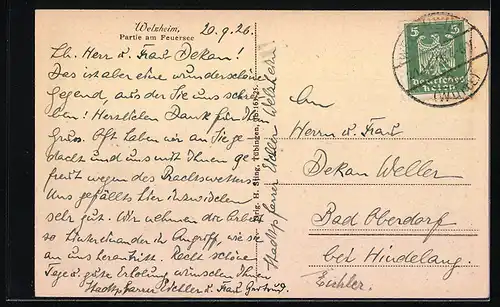 Welzheim,
Partie am Feuersee
20.9.26.
Lb. Herr u. Frau Dekan!
Das ist aber eine wunderschöne
Gegend, aus der Sie uns schrei-
ben! Herzlichen Dank für Ihren
Gruss. Oft haben wir an Sie ge-
dacht und uns mit Ihnen ge-
freut wegen des Prachtswetters.
Uns gefällts hier
sehr gut. Wir nehmen die Arbeit
so hintereinander in Angriff, wie sie
an uns herantritt. Recht schöne
Tage u. gute Erholung wünschen Ihnen
Stadtpfarrer Eichler u. Frau Gertrud.
Verlag H. Sting, Tübingen,
Stadtpfarrer Eichler Welzheim
5 5
Deutsches
Reich
An
Herrn u. Frau
Dekan Weller
Bad Oberdorf
bei Hindelang.
Eichler.